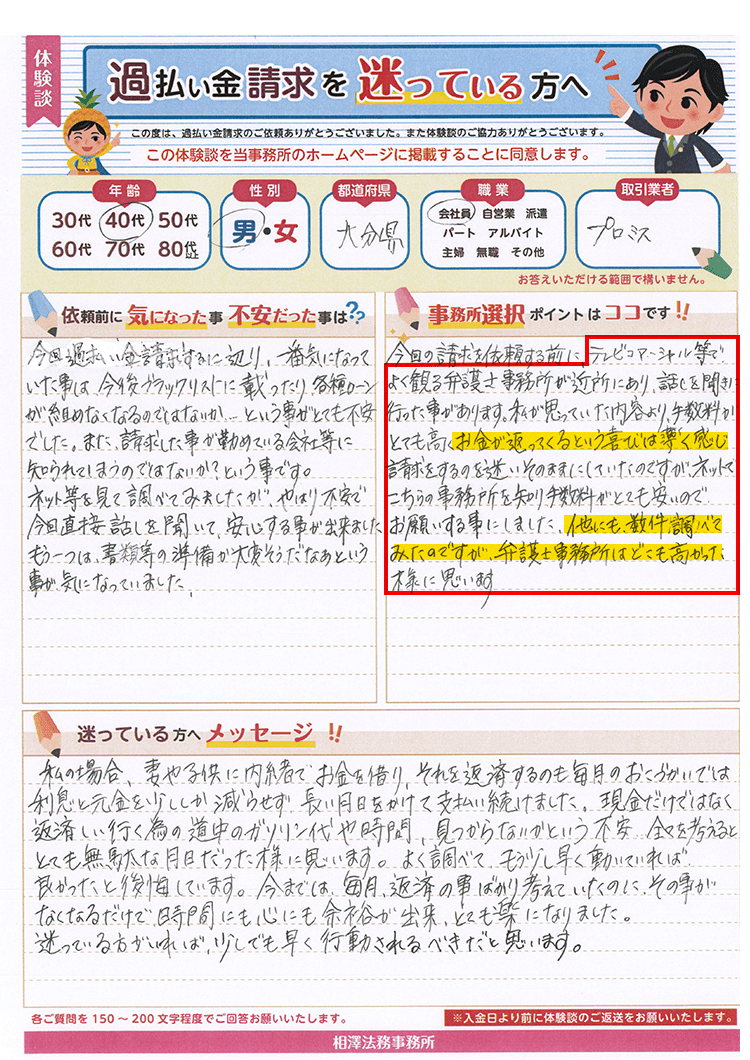 体験談
過払い金請求を迷っている方へ
この度は、過払い金請求のご依頼ありがとうございました。また体験談のご協力ありがとうございます。
この体験談を当事務所のホームページに掲載することに同意します。
年齢
30代 40代 50代
60代 70代 80代以上
性別
男・女
都道府県
大分県
職業
会社員 自営業 派遣
パート アルバイト
主婦 無職 その他
取引業者
プロミス
お答えいただける範囲で構いません。
依頼前に気になった事 不安だった事は??
今回過払い金請求するに辺り、一番気になって
いた事は、今後ブラックリストに載ったり、各種ローン
が組めなくなるのではないか…という事がとても不安
でした。また、請求した事が勤めている会社等に
知られてしまうのではないか?という事です。
ネット等を見て調べてみましたが、やはり不安で
今回直接話しを聞いて、安心する事が出来ました
もう一つは、書類等の準備が大変そうだなあという
事が気になっていました、
事務所選択ポイントはココです!!
今回の請求を依頼する前に、テレビコマーシャル等で
よく観る弁護士事務所が近所にあり、話しを聞きに
行った事があります。私が思っていた内容より、手数料が
とても高く、お金が返ってくるという喜びは薄く感じ
請求をするのを迷いそのままにしていたのですが、ネットで
こちらの事務所を知り手数料がとても安いので
お願いする事にしました、他にも、数件調べて
みたのですが、弁護士事務所はどこも高かった
様に思います
迷っている方へメッセージ!!
私の場合、妻や子供に内緒で お金を借り、それを返済するのも毎月のおこづかいでは
利息と元金を少ししか減らせず、長い月日をかけて支払い続けました。現金だけではなく
返済しに行く為の道中のガソリン代や時間、見つからないかという不安、全てを考えると
とても無駄な月日だった様に思います。よく調べて、もう少し早く動いていれば
良かったと後悔しています。今までは、毎月、返済の事ばかり考えていたのに、その事が
なくなるだけで時間にも心にも余裕が出来、とても楽になりました。
迷っている方がいれば、少しでも早く行動されるべきだと思います。
各ご質問を150〜200文字程度でご回答お願いいたします。
※入金日より前に体験談のご返送をお願いいたします。
相澤法務事務所